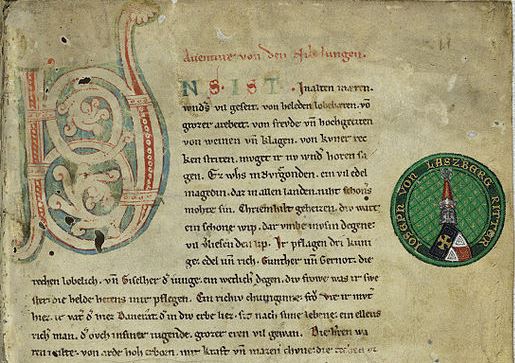 Auenture von den Nibelungen.
VNS IST. In alten mæren.
wnders vil geseit. von heleden lobebæren. vñ
grozer arebeit. von frevde vñ hochgeciten
von weinen vñ klagen. von kvner rec
ken striten. mvget ir nv wnder horen sa
gen. Ez whs in Bvrgonden. ein vil edel
magedin. daz in allen landen. niht schoners
mohte sin. Chriemhilt geheizen. div wart
ein schone wip. dar vmbe mvsin degene
vil verliesen den lip. Ir pflagen dri kuni
ge. edel vñ rich. Gunther vñ Gernot. die
rechen lobelich. vñ Giselher d iunge. ein wetlich degen. div frowe was ir swe
ster. die helde hetens inir pflegen. Ein richiv chuniginne. frŏ Vte ir mvt
hiez. ir vat d hiez Dancrat. d in div erbe liez. sit nach sime lebene. ein ellens
rich man. d ovch in siner iugende. grozer eren vil gewan. Die h'ren wa
ren milte. von arde hoh erborn. mit kraft vn mazen chvne. die
IOSEPH VON LASZBERG RITTER